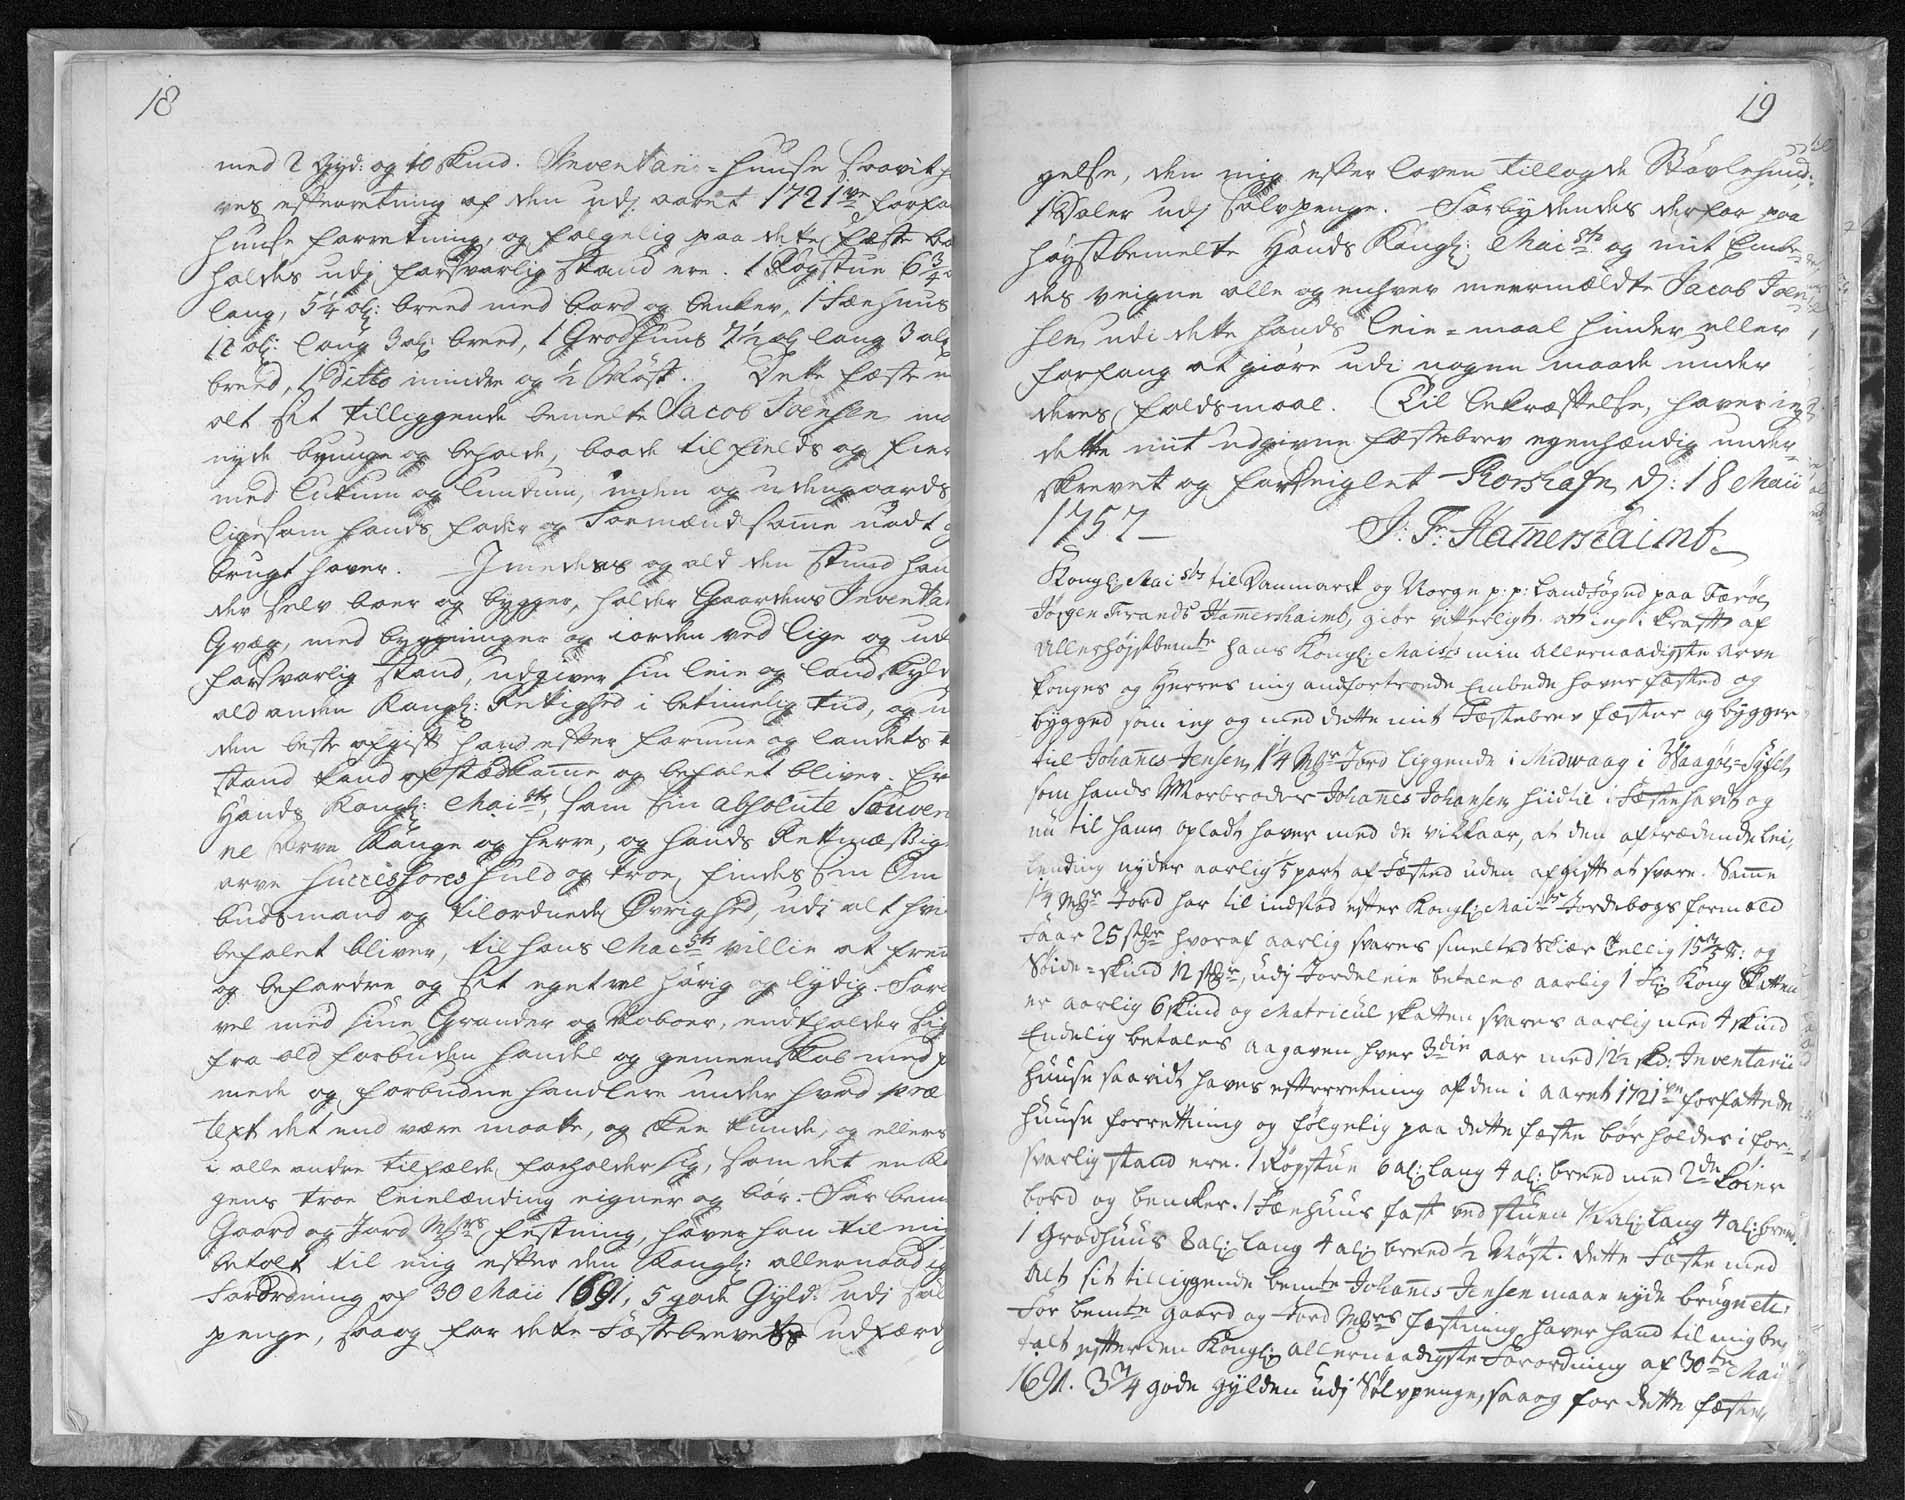 18
med 2 Gyd: og 10 skind. Inventarii-Huuse saavit h
ves efterretning af den udj aaret 1721ve forfa
Huuse forretning, og følgelig paa dette Fæste bø
holdes udj forsvarlig stand ere. 1 Røgstue 6 3/4 a
lang, 5 1/4 al: breed med bord og benker, 1 Fæehuus
al: lang 3 al: breed, 1 Grodhuus 7 1/2 al: lang 3 al:
breed, 1 Ditto mindre og 1/2 Møst. Dette fæste m
alt sit tilliggende bemelte Jacob Joensen ma
nyde bruuge og beholde, baade til fields og fier
med lutum og lundum, inden og udengaards
ligesom hands fader og Formænd same nødt og
brugt haver. Imedens og ald den stund han
der selv boer og bygger, holder Gaardens Inventar
Qvæg, med bygninger og iorden ved lige og ud
forsvarlig stand, udgiver sin leie og landskyld
ald anden Kongl: Rettighed i betimelig tid, og u
den beste afgift hand efter formue og landets t
stand kand afstædkome og befalet bliver. Er
Hands Kongl: Maists, som sin absolute Souver
ne Arve Konge og Herre, og hands Retmæssige
arve Successores huld og troe, findes sin Om
budsmand og tilordnede Øvrighed, udi alt hvi
befalet bliver, til hans Maists villie at frem
og befordre og sit eget vel hørig og lydig. For
vel med sine Grander og Naboer, entholder sig
fra ald forbuden handel og gemeenskab med f
mede og forbudne handlere under hvad præ
text det end være maatte, og skee kunde, og ellers
i alle andre tilfælde forholder sig, som det en Ko
gens troe leielænding eigner og bør. For bem
Gaard og Jord Mkrs festning, haver han til mig
betalt til mig efter den Kongl: allernaadig
Forordning af 30 Maii 1691, 5 gode Gyld: udj søl
penge, saaog for dette Fæstebrevets udfærd
19
gelse, den mig efter loven tillagde Støvlehud,
1 Daler udj Sølvpenge. Forbydendes derfor paa
høystbemelte Hands Kongl: Maists og mit Embe-
des veigne alle og enhver meermældte Jacob Joen-
sen udi dette hands leie-maal hinder eller
forfang at giøre udi nogen maade under
deres faldsmaal. Til bekræftelse, haver ieg
dette mit udgivne fæstebrev egenhændig under-
skrevet og forseiglet Thorshafn d: 18 Maii
1757— J: Fr: Hamershaimb.
Kongl: Maists til Danmarck og Norge p: p: Landfoged paa Færøe
Jørgen Frands Hamershaimb, giør vitterligt. at ieg i krafft af
Allerhøjstbemte hans Kongl: Maists min allernaadigste Arve
Konges og Herres mig andfortroede Embede haver fæsted og
bygged som ieg og med dette mit Fæstebrev fæster og bygger
til Johanes Jensen 1/4 Mkr Jord liggende i Midwaag i Waagøe-Syssel
som hands Morbroder Johanes Johansen hidtil i Fæste havdt og
nu til ham opladt haver med de vilkaar, at den aftrædende lei-
lending nyder aarlig 1/5 part af Fæsted uden afgift at svare. Same
1/4 Mkr Jord har til indstød efter Kongl: Maists Jordebogs formæld
Faar 25 stkr hvoraf aarlig svares smelted Skiær Tellig 15 3/5 : og
Søide-skind 12 stkr, udj Jordeleie betales aarlig 1 Fl: Kong Skatten
er aarlig 6 skind og Matricul skatten svares aarlig med 4 skind
Endelig betales aagaven hver 3die aar med 12 1/2 sk: Inventarii
Huuse saavidt haves efterretning af den i aaret 1721ve forfattede
Huuse forretning og følgelig paa dette fæste bør holdes i for-
svarlig stand ere. 1 Røgstue 6 al: lang 4 al: breed med 2de Køier
bord og bencker. 1 Fæehuus fast ved stuen al: lang 4 al: breed.
1 Grodhuus 8 al: lang 4 al: breed 1/2 Møst. dette Fæste med
Alt sit tilliggende bemte Johanes Jensen maae nyde brug etc:
For bemte Gaard og Jord Mkrs fæstning haver hand til mig be-
talt efter den Kongl: allernaadigste Forordning af 30te Maii
1691. 3 3/4 gode gylden udj Sølvpenge, saaog for dette fæste